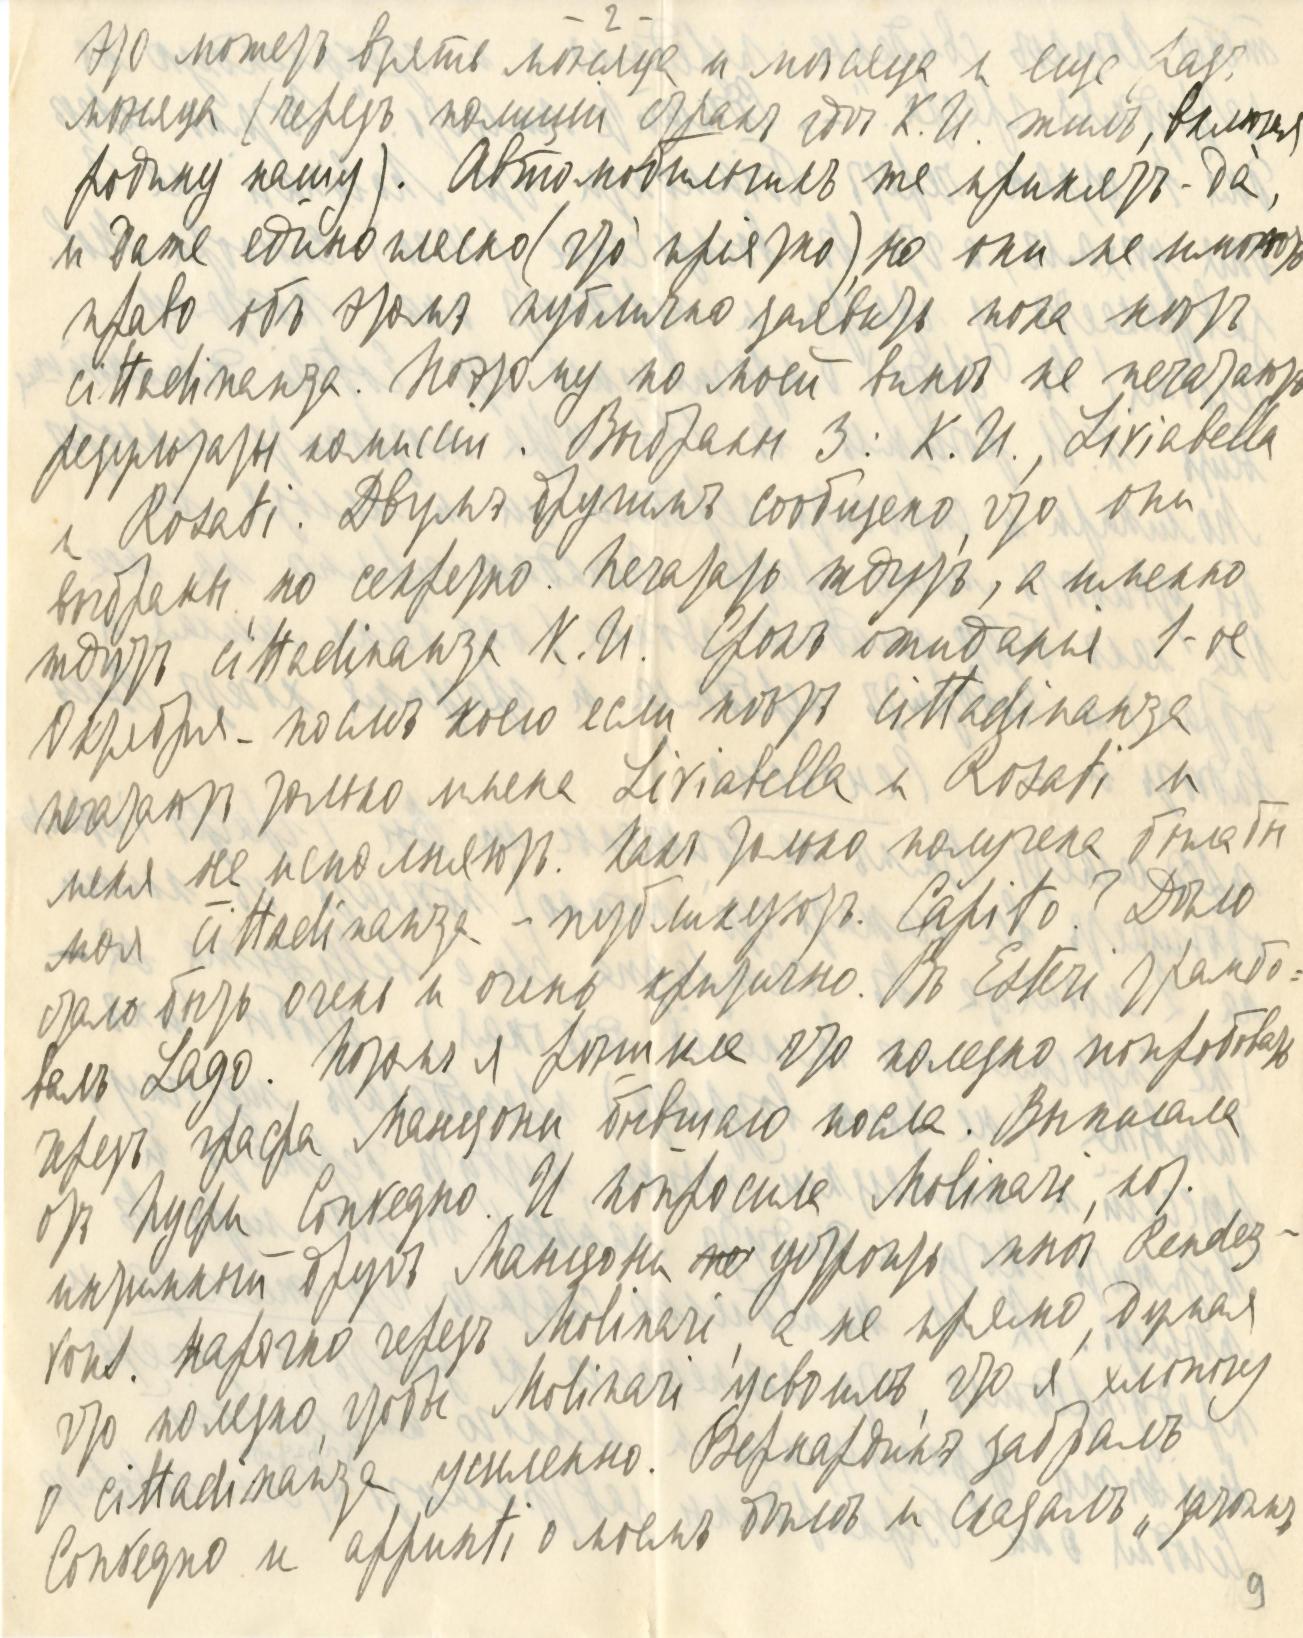 - 2 -
это можетъ взять мѣсяца и мѣсяца и еще разъ
мѣсяца (черезъ полиціи странъ гдѣ К.И. жилъ, включая
родину нашу). Автомобиличикъ же принятъ - да,
и даже единогласно (что пріятно), но они не имѣютъ
право объ этомъ публично заявить пока нѣтъ
cittadinanza. Поэтому по моей винѣ не печатаютъ
результаты комиссіи. Выбраны 3: К.И., Liviabella
и Rosati. Двумъ другимъ сообщено, что они
выбраны, но секретно. Печатать ждутъ, а именно
ждутъ cittadinanza К.И. Срокъ ожиданія 1-ое
Октября - послѣ коего если нѣтъ cittadinanza
печатаютъ только имена Liviabella и Rosati и
меня не исполняютъ. Какъ только получена была бы
моя cittadinanza - публикуютъ. Capito? Дѣло
стало быть очень и очень критично. Въ Esteri трамбо=
валъ Lago. Потомъ я рѣшила что полезно попробовать
черезъ графа Манцони бывшаго посла. Выписала
отъ Пуфи Convegno. И попросила Molinari, кот.
интимный другъ Манцони устроить мнѣ Rendez-
vous. Нарочно черезъ Molinari, а не прямо, думая
что полезно, чтобы Molinari усвоилъ, что я хлопочу
о cittadinanza усиленно. Бернардинъ забралъ
Convegno и appunti о моемъ дѣлѣ и сказалъ „
9